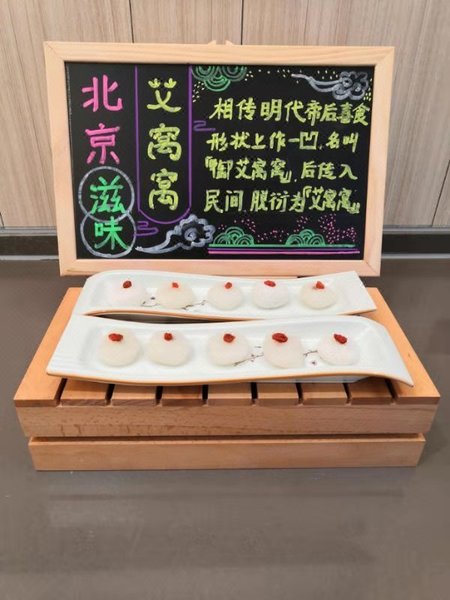 北京
滋味
艾窝窝
相传明代帝后喜食
形状上作一凹,名叫
『御艾窝窝』,后传入
民间 脱衍为『艾窝窝』